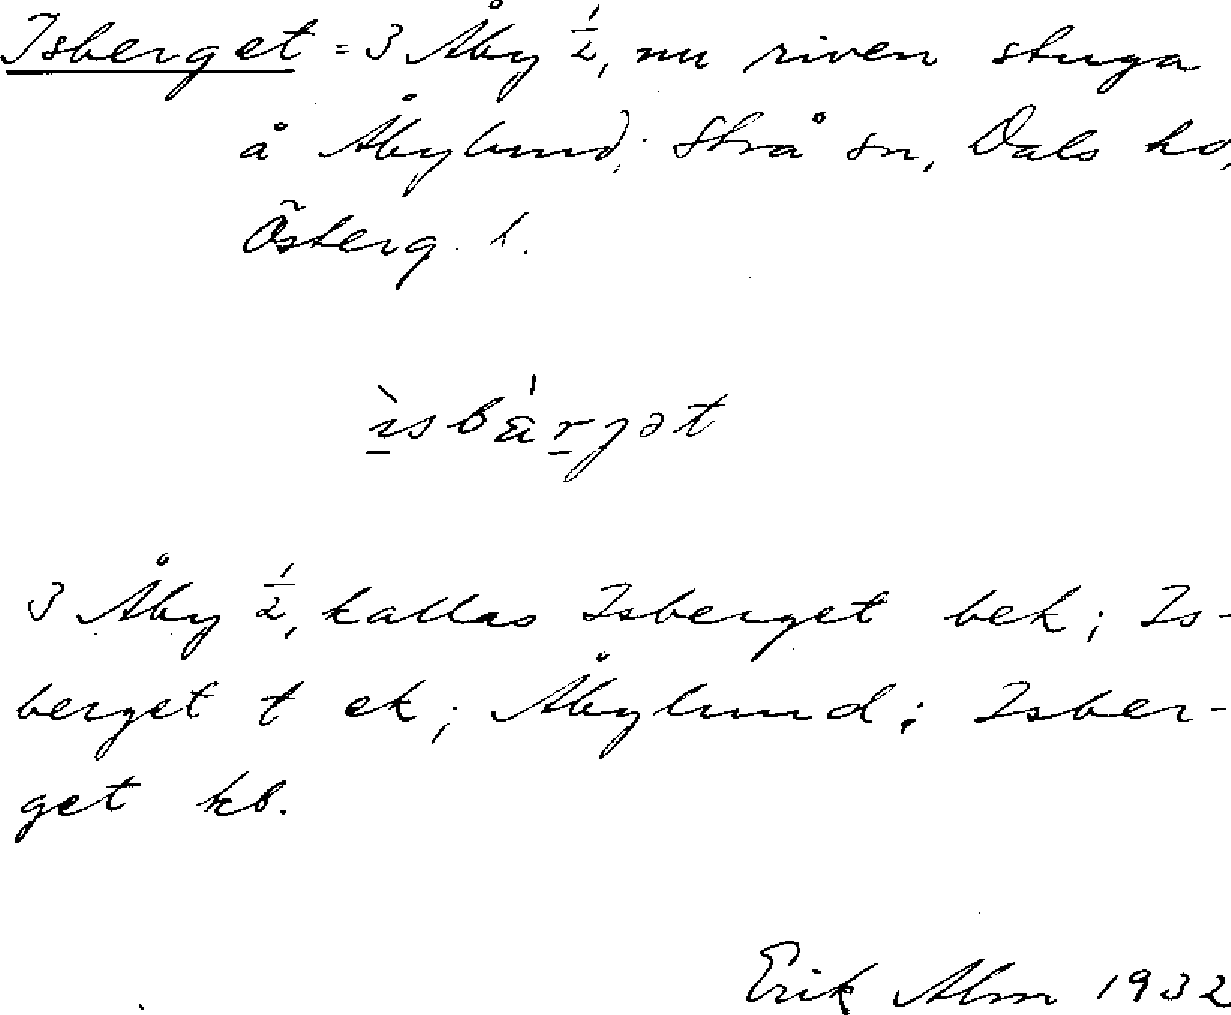 Isberget = 3 Åby 1/2, nu riven stuga
å Åbylund; Strå sn, Dals hd,
Österg. l.
ìsbá̈rjət
3 Åby 1/2, kallas Isberget bek; Is-
berget t ek; Åbylund; Isber-
get kb.
Erik Alm 1932